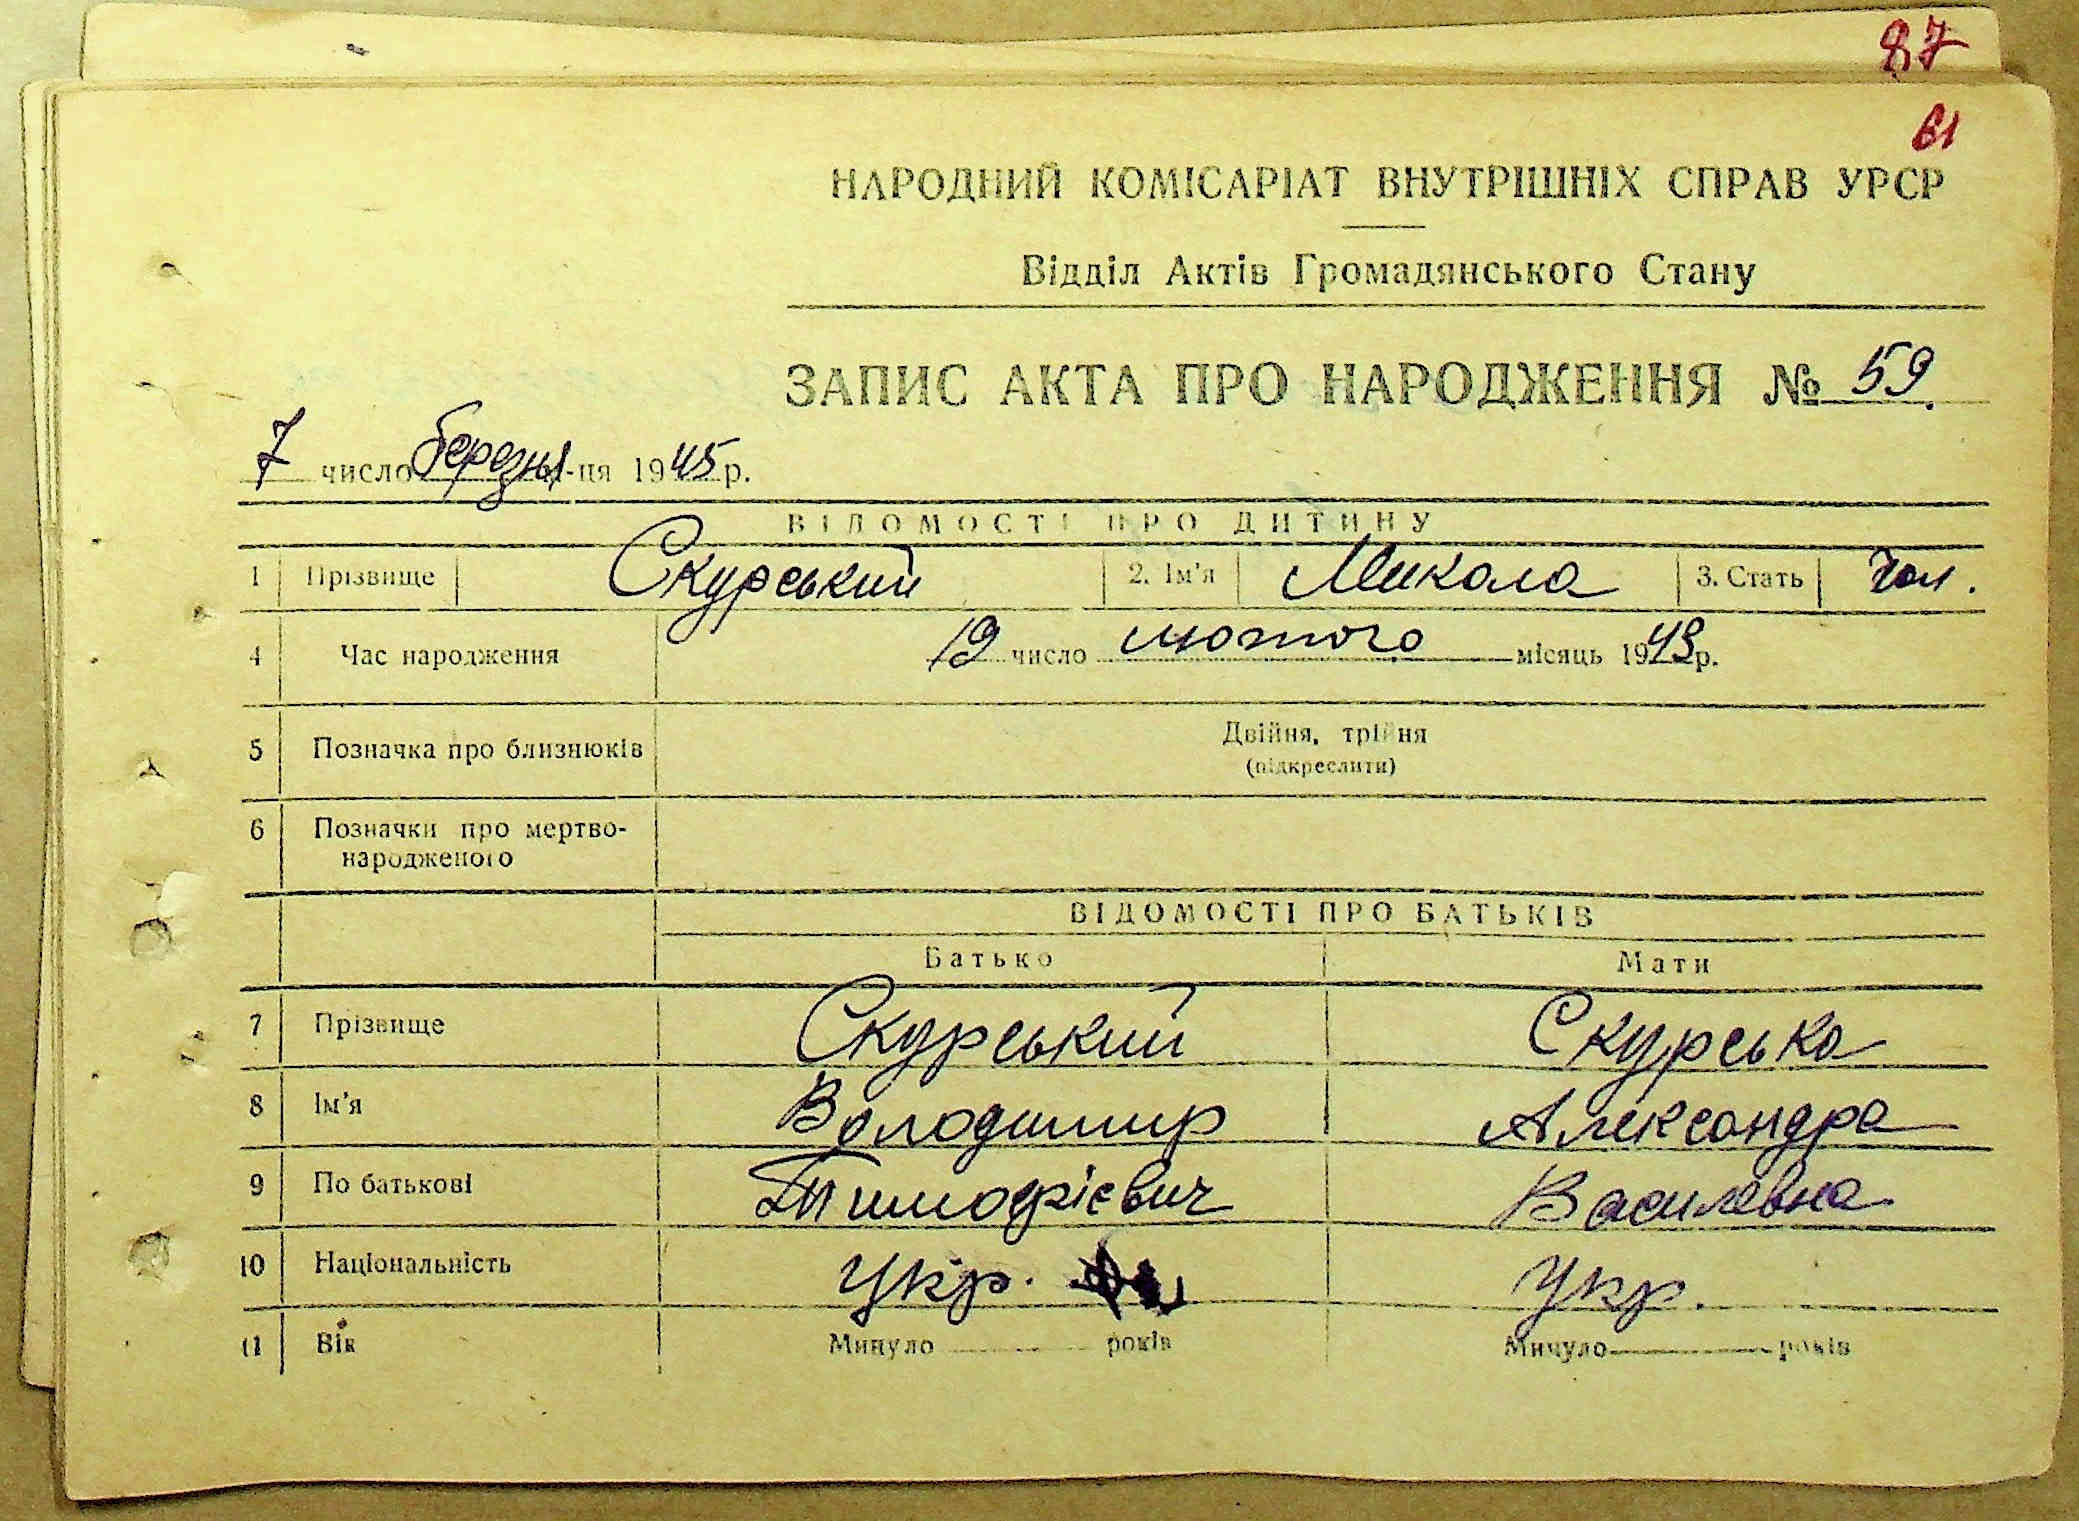 87
61
НАРОДНИЙ КОМІСАРІАТ ВНУТРІШНІХ СПРАВ УРСР
Відділ Актів Громадянського Стану
ЗАПИС АКТА ПРО НАРОДЖЕННЯ № 59.
7 число березня м-ця 1945 р.
ВІДОМОСТІ ПРО ДИТИНУ
1 Прізвище Скурський 2. Ім'я Микола 3. Стать Чол.
4 Час народження 19 число лютого місяць 1943 р.
5 Позначка про близнюків Двійня, трійня
(підкреслити)
6 Позначки про мертво-
народженого
ВІДОМОСТІ ПРО БАТЬКІВ
Батько Мати
7 Прізвище Скурський Скурська
8 Ім'я Володимир Александра
9 По батькові Тимофієвич Василевна
10 Національність Укр. Укр.
11 Вік Минуло років Минуло років